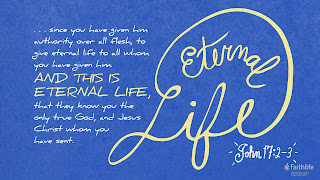 . . . since you have given him
authority over all flesh, to
give eternal life to all whom
you have given him.
AND THIS IS
ETERNAL LIFE,
that they know you the
only true God, and Jesus
Christ whom you
have sent.
Eternal
Life
John 17:2-3
Faithlife